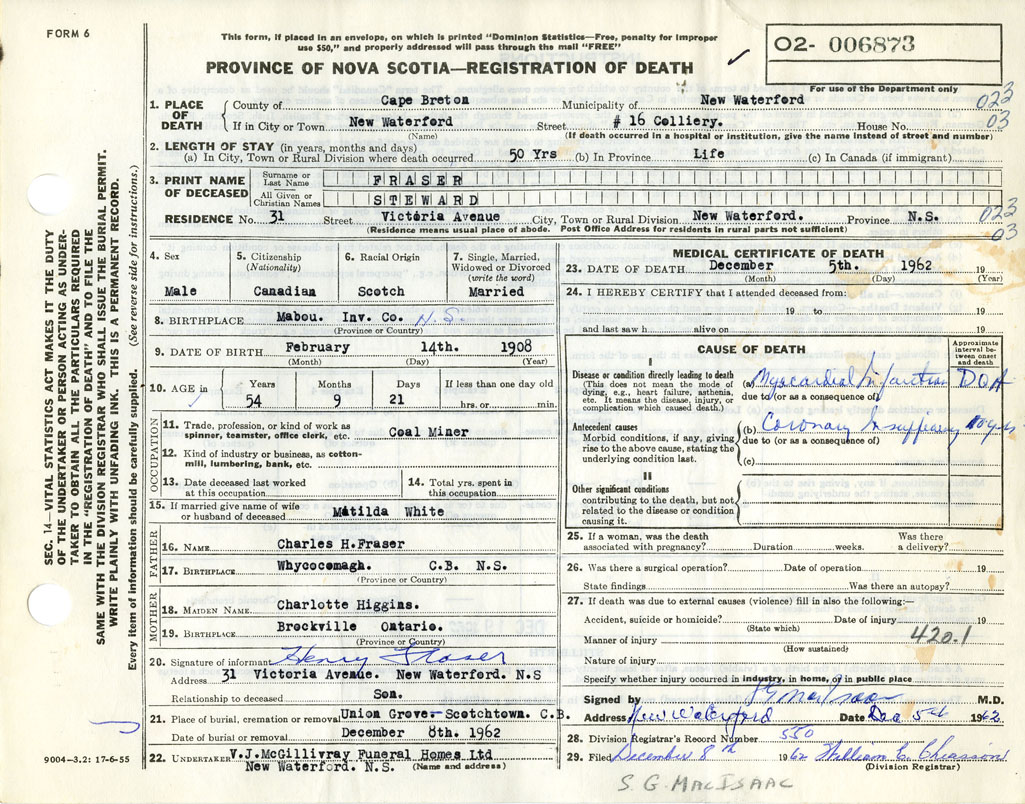 FORM 6
This form, if placed in an envelope, on which is printed "Dominion Statistics—Free, penalty for improper
use $50," and properly addressed will pass through the mail "FREE"
PROVINCE OF NOVA SCOTIA—REGISTRATION OF DEATH
02- 006873
For use of the Department only
1. PLACE OF DEATH
County of Cape Breton Municipality of New Waterford 023
If in City or Town New Waterford Street # 16 Colliery. House No. 03
(Name) (If death occurred in a hospital or institution, give the name instead of street and number)
2. LENGTH OF STAY (in years, months and days)
(a) In City, Town or Rural Division where death occurred 50 Yrs (b) In Province Life (c) In Canada (if immigrant)
3. PRINT NAME OF DECEASED
Surname or Last Name FRASER
All Given or Christian Names STEWARD
RESIDENCE No. 31 Street Victoria Avenue City, Town or Rural Division New Waterford. Province N.S. 023
(Residence means usual place of abode. Post Office Address for residents in rural parts not sufficient) 03
4. Sex
Male
5. Citizenship
(Nationality)
Canadian
6. Racial Origin
Scotch
7. Single, Married,
Widowed or Divorced
(write the word)
Married
8. BIRTHPLACE Mabou. Inv. Co. N.S.
(Province or Country)
9. DATE OF BIRTH February 14th. 1908
(Month) (Day) (Year)
10. AGE in
Years Months Days If less than one day old
54 9 21 hrs. or min.
OCCUPATION
11. Trade, profession, or kind of work as
spinner, teamster, office clerk, etc. Coal Miner
12. Kind of industry or business, as cotton-
mill, lumbering, bank, etc.
13. Date deceased last worked
at this occupation
14. Total yrs. spent in
this occupation
15. If married give name of wife
or husband of deceased Matilda White
FATHER
16. NAME Charles H.Fraser
17. BIRTHPLACE Whycocomagh. C.B. N.S.
(Province or Country)
MOTHER
18. MAIDEN NAME Charlotte Higgins.
19. BIRTHPLACE Brockville Ontario.
(Province or Country)
20. Signature of informant Henry Fraser
Address 31 Victoria Avenue. New Waterford. N.S
Relationship to deceased Son.
21. Place of burial, cremation or removal Union Grove- Scotchtown. C.B.
Date of burial or removal December 8th. 1962
22. UNDERTAKER V.J.McGillivray Funeral Homes Ltd
New Waterford. N.S. (Name and address)
9004—3.2: 17-6-55
SEC. 14—VITAL STATISTICS ACT MAKES IT THE DUTY
OF THE UNDERTAKER OR PERSON ACTING AS UNDER-
TAKER TO OBTAIN ALL THE PARTICULARS REQUIRED
IN THE "REGISTRATION OF DEATH" AND TO FILE THE
SAME WITH THE DIVISION REGISTRAR WHO SHALL ISSUE THE BURIAL PERMIT.
WRITE PLAINLY WITH UNFADING INK. THIS IS A PERMANENT RECORD.
Every item of information should be carefully supplied. (See reverse side for instructions.)
MEDICAL CERTIFICATE OF DEATH
23. DATE OF DEATH December 5th. 1962 19
(Month) (Day) (Year)
24. I HEREBY CERTIFY that I attended deceased from:
19 to 19
and last saw h alive on 19
CAUSE OF DEATH
Approximate
interval be-
tween onset
and death
I
Disease or condition directly leading to death
(This does not mean the mode of
dying, e.g., heart failure, asthenia,
etc. It means the disease, injury, or
complication which caused death.)
(a) Myocardial Infarction DOA
due to (or as a consequence of)
Antecedent causes
Morbid conditions, if any, giving
rise to the above cause, stating the
underlying condition last.
(b) Coronary Insufficiency 10 yrs
due to (or as a consequence of)
(c)
II
Other significant conditions
contributing to the death, but not
related to the disease or condition
causing it.
25. If a woman, was the death
associated with pregnancy? Duration weeks.
Was there
a delivery?
26. Was there a surgical operation? Date of operation 19
State findings Was there an autopsy?
27. If death was due to external causes (violence) fill in also the following:—
Accident, suicide or homicide? Date of injury 19
(State which)
Manner of injury 420.1
(How sustained)
Nature of injury
Specify whether injury occurred in industry, in home, or in public place
Signed by M.D.
Address New Waterford Date Dec 5th 1962
28. Division Registrar's Record Number 550
29. Filed December 8th 1962 William
(Division Registrar)
S. G. MACISAAC